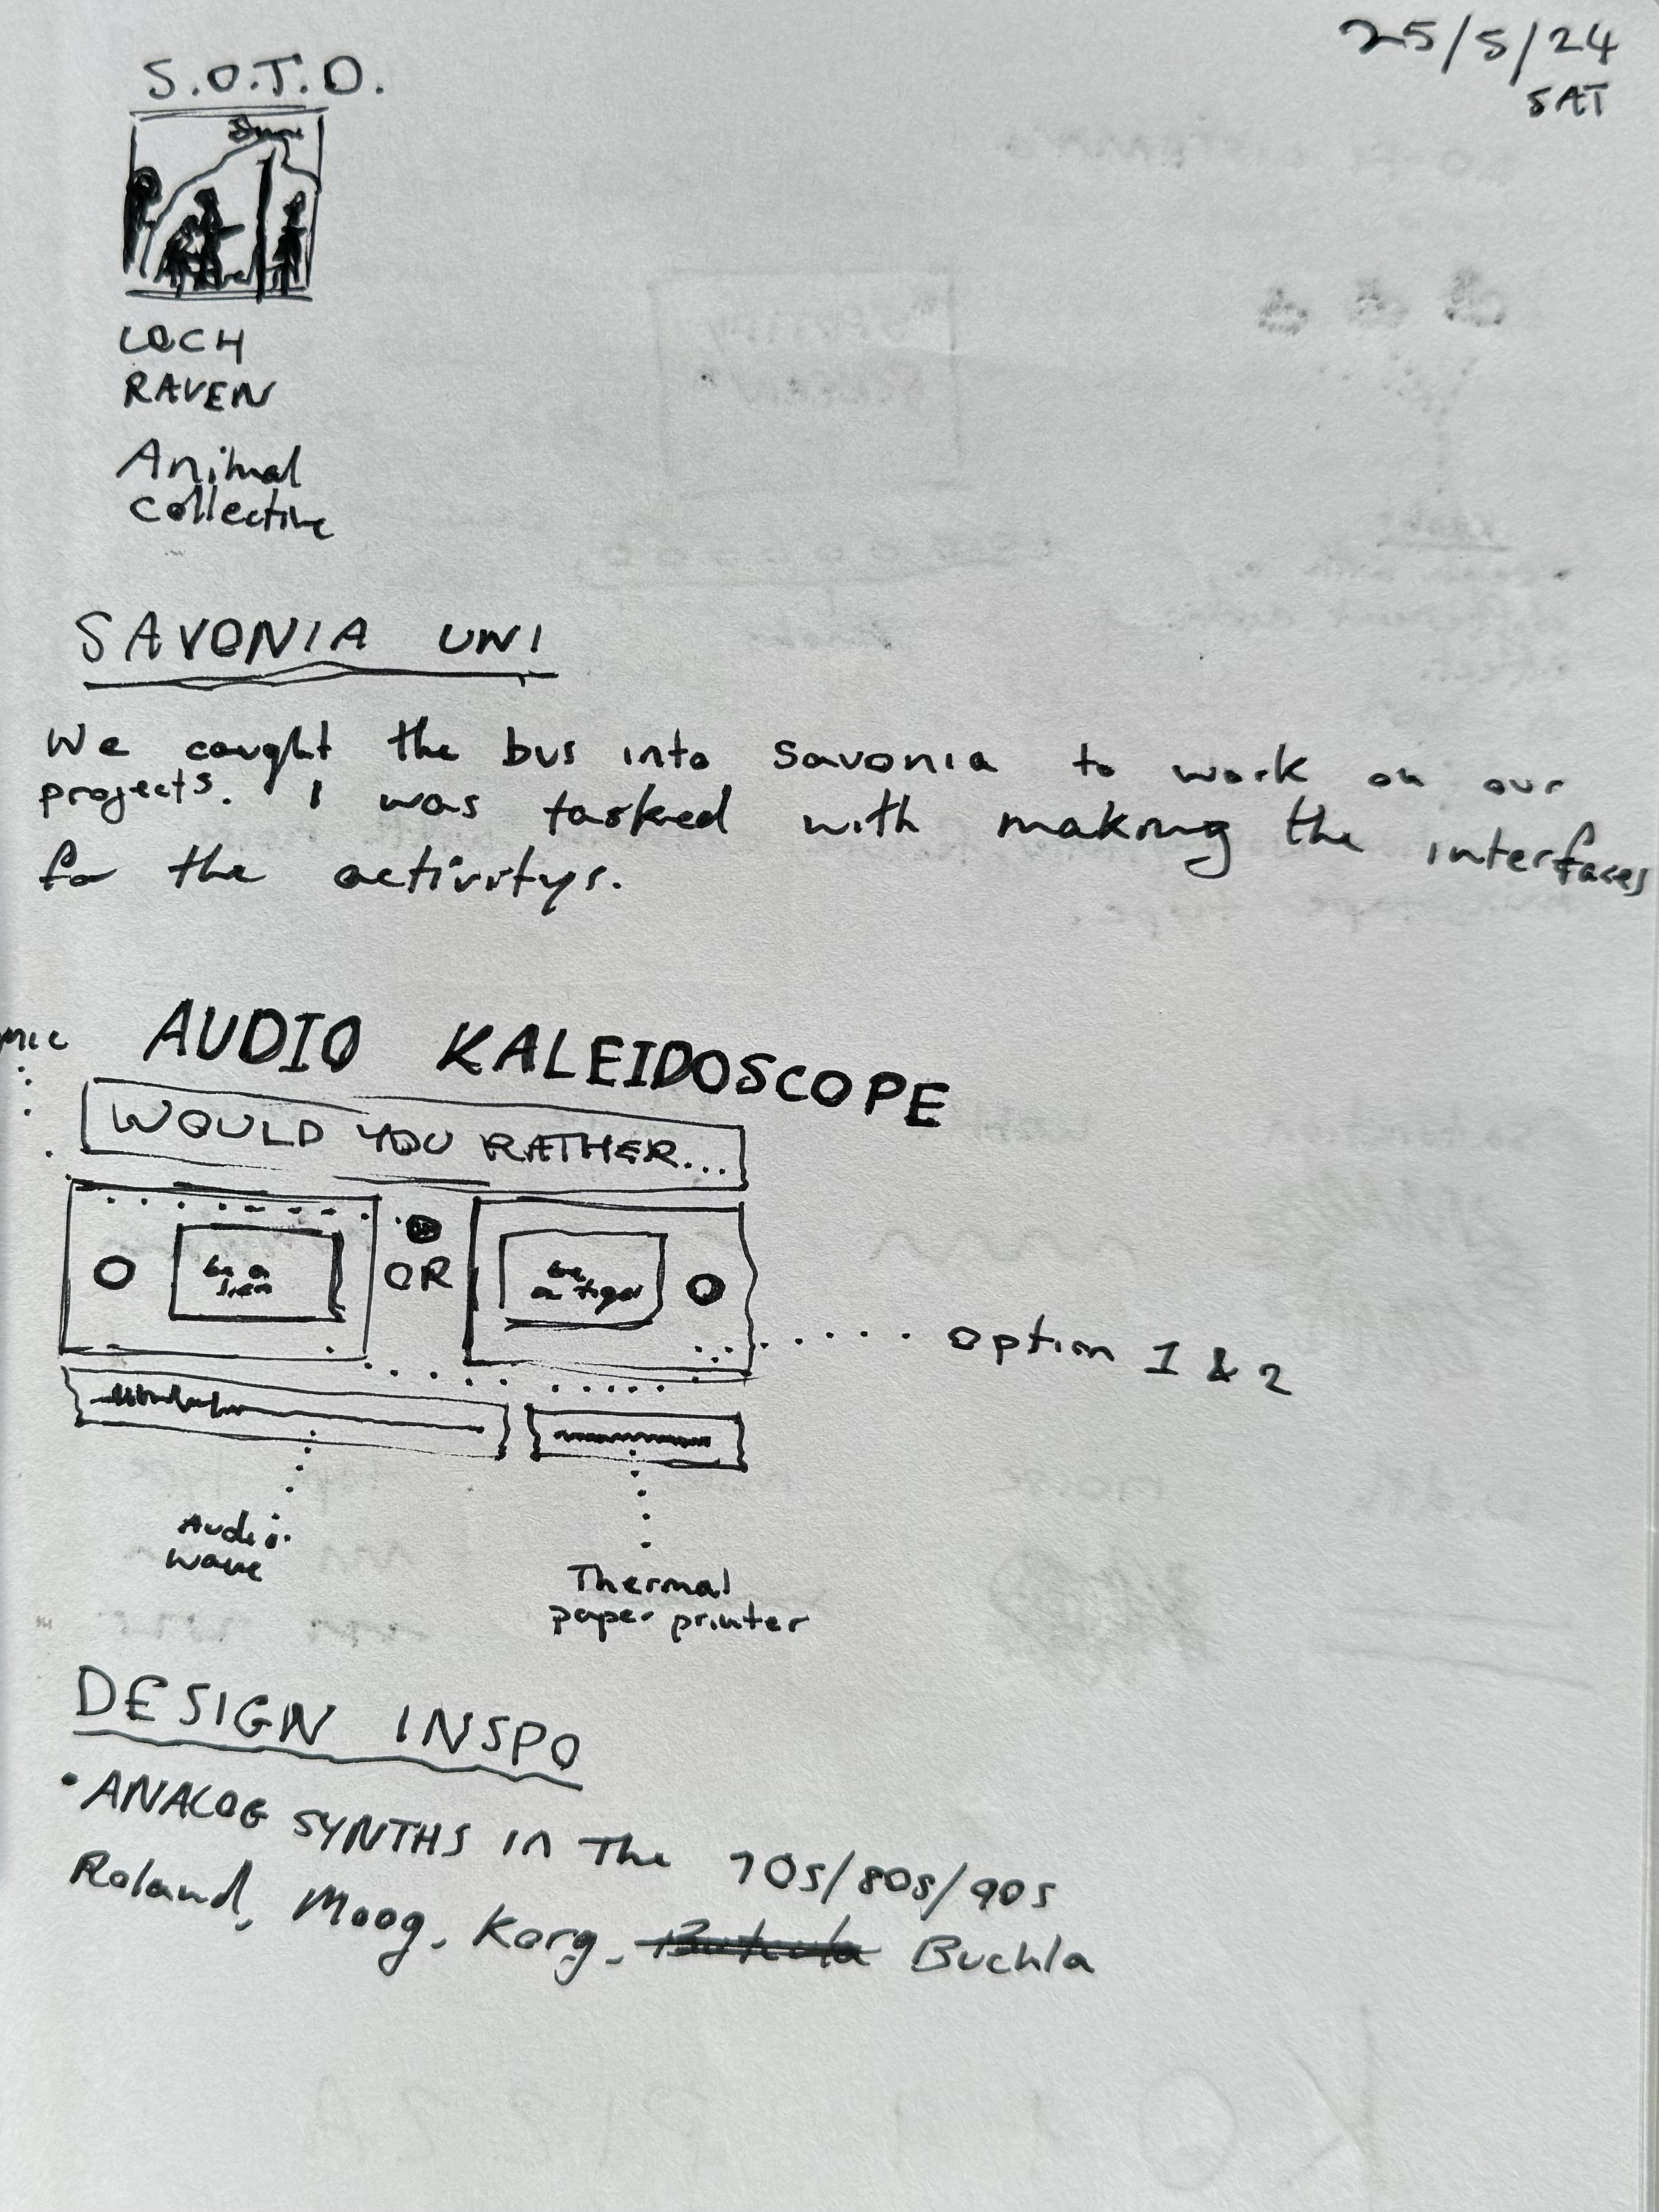 25/5/24
SAT
S.O.T.D.
LOCH
RAVEN
Animal
Collective
SAVONIA UNI
We caught the bus into Savonia to work on our
projects. I was tasked with making the interfaces
for the activitys.
MIC
AUDIO KALEIDOSCOPE
WOULD YOU RATHER...
be a
lion
OR
be
a tiger
option 1 & 2
Audio
wave
Thermal
paper printer
DESIGN INSPO
• ANALOG SYNTHS in The 70s/80s/90s
Roland, Moog, Korg, Buchla